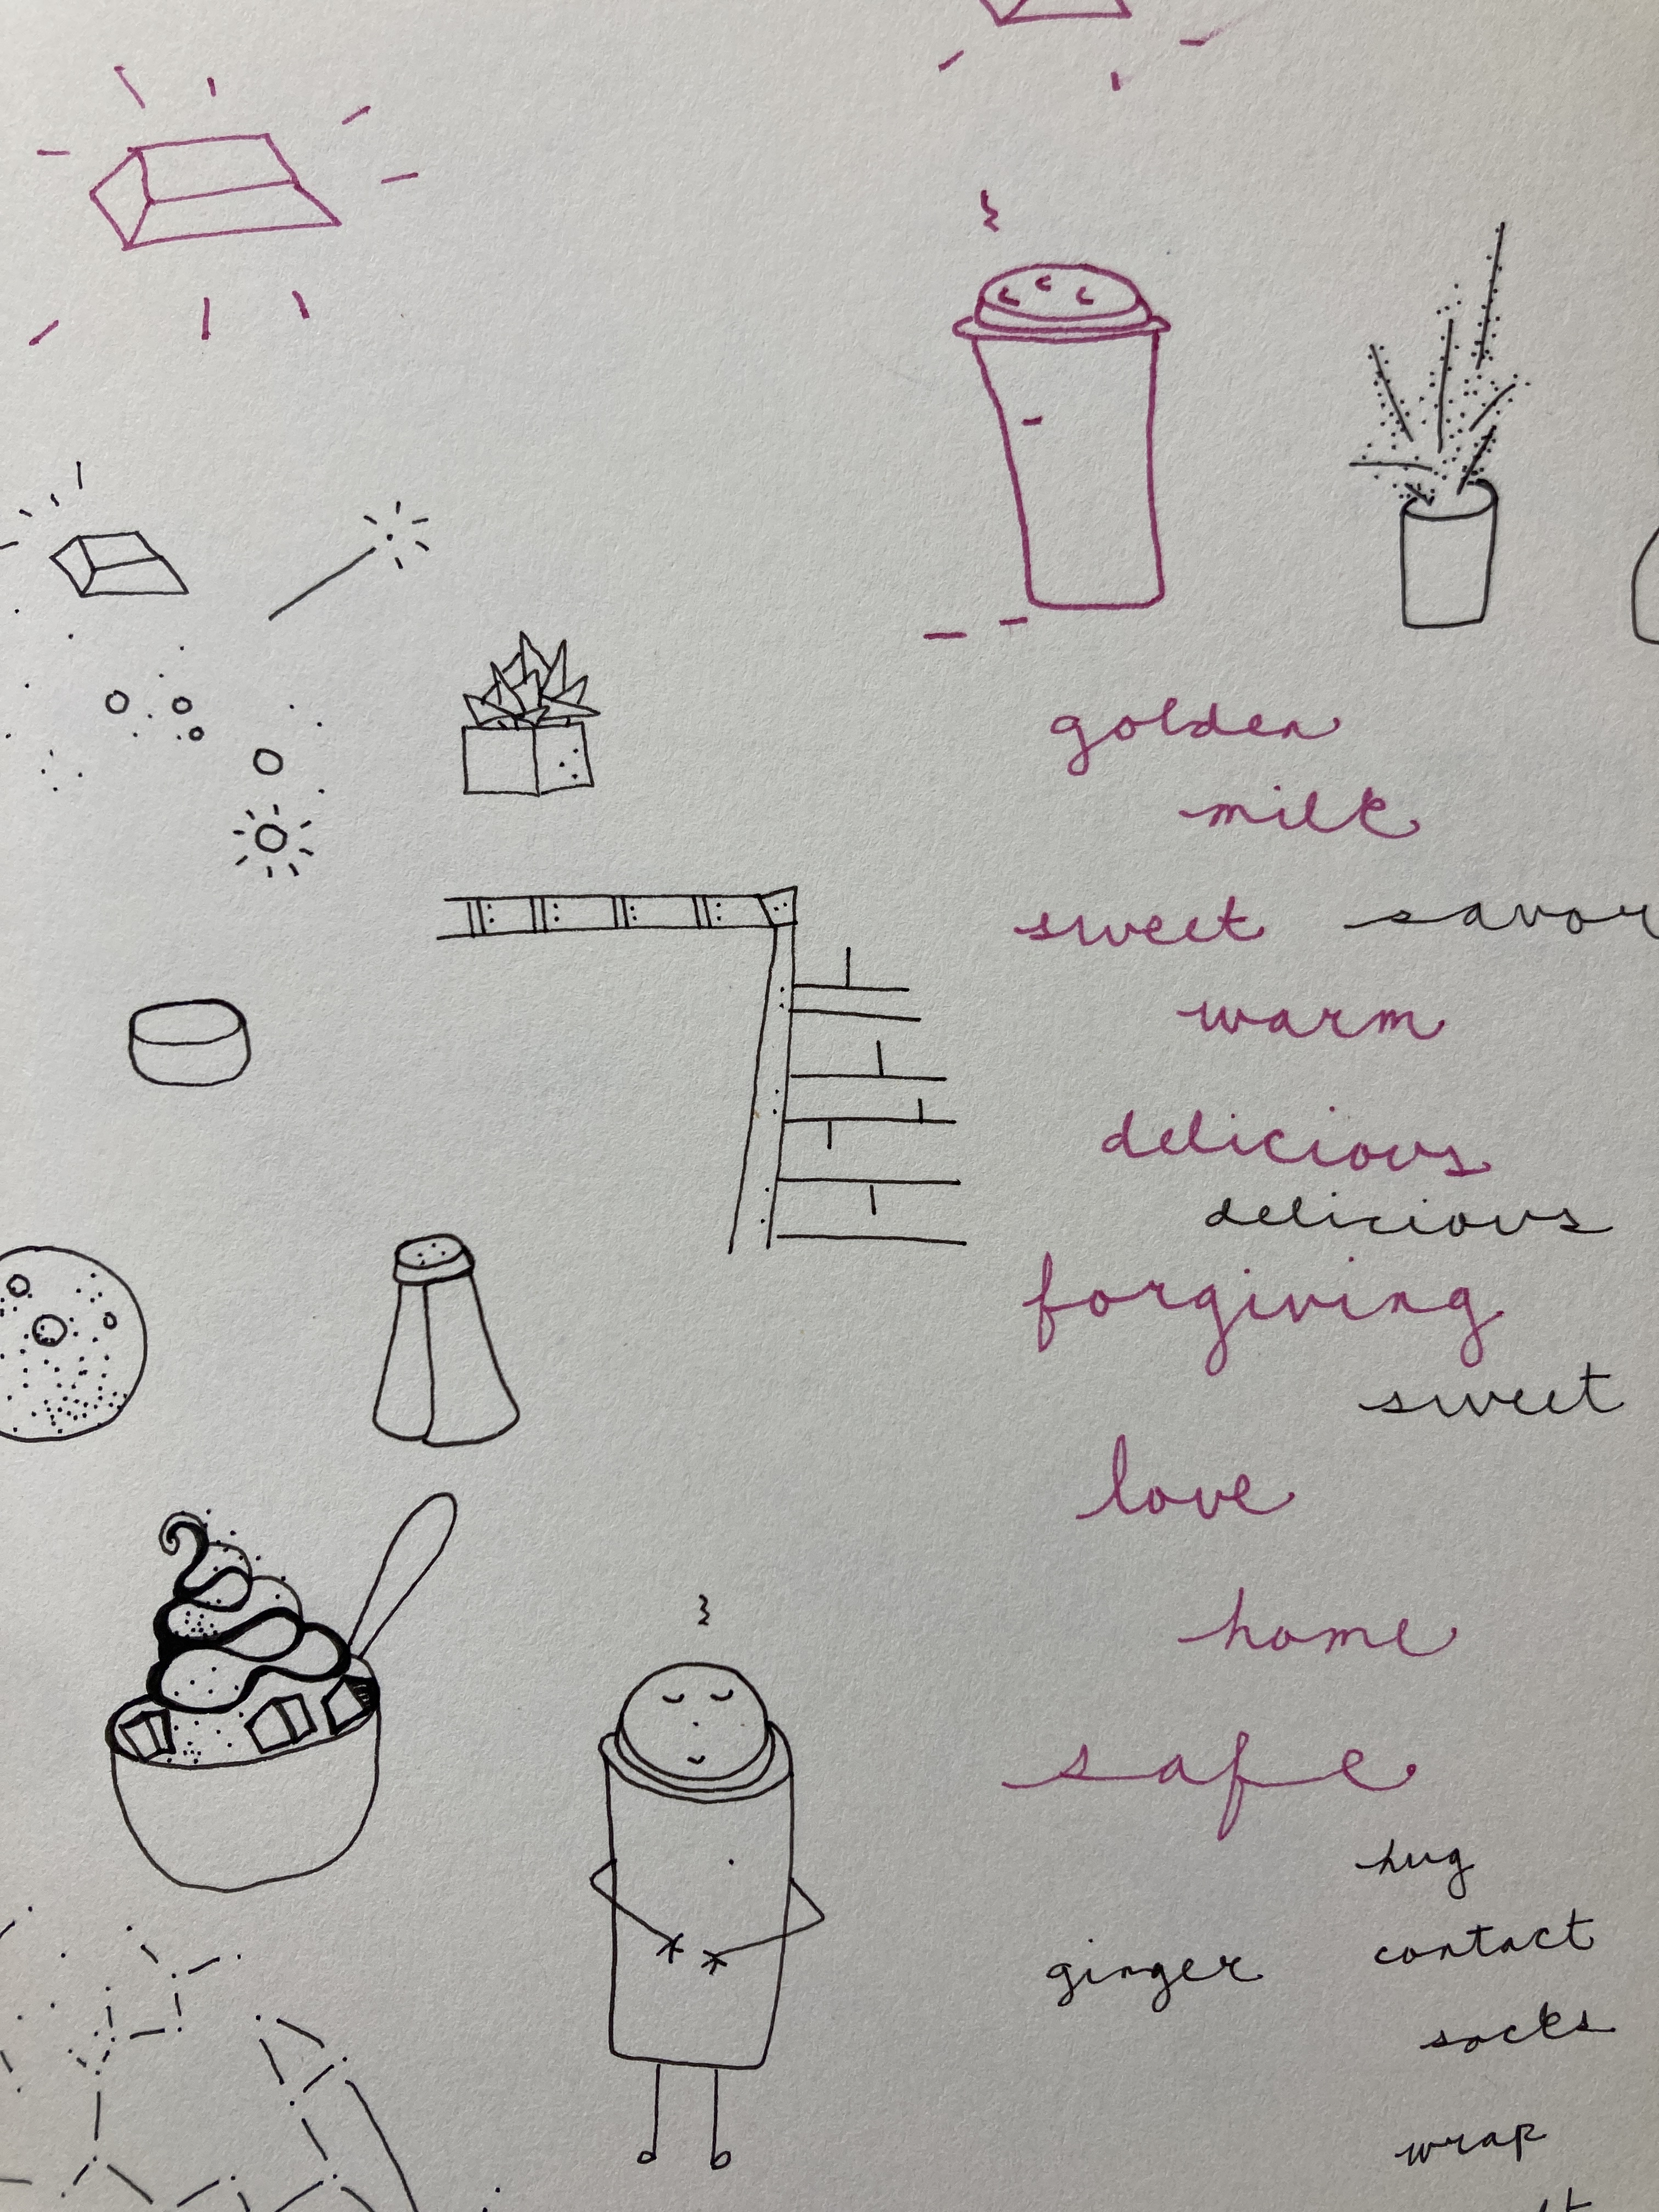 golden
milk
sweet savor
warm
delicious
delicious
forgiving
sweet
love
home
safe
hug
contact
ginger
socks
wrap